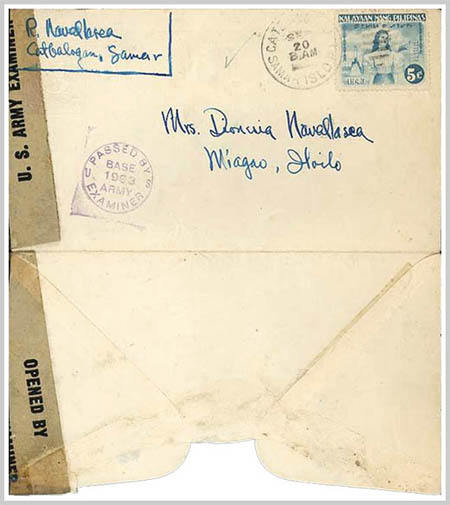 U. S. ARMY EXAMINER
R. Navallasca
Catbalogan, Samar
CAT
20
8 AM
SAMAR ISLD
KALAYAAN NANG PILIPINAS
5c
Mrs. Dionicia Navallasca
Miagao, Iloilo
PASSED BY
BASE
1963
ARMY
EXAMINER
U S
OPENED BY